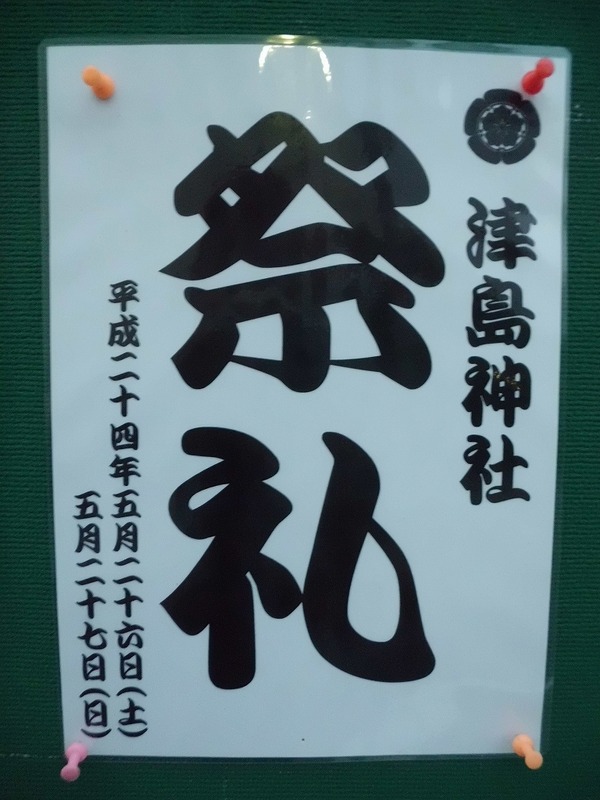 津島神社
祭礼
平成二十四年五月二十六日(土)
五月二十七日(日)